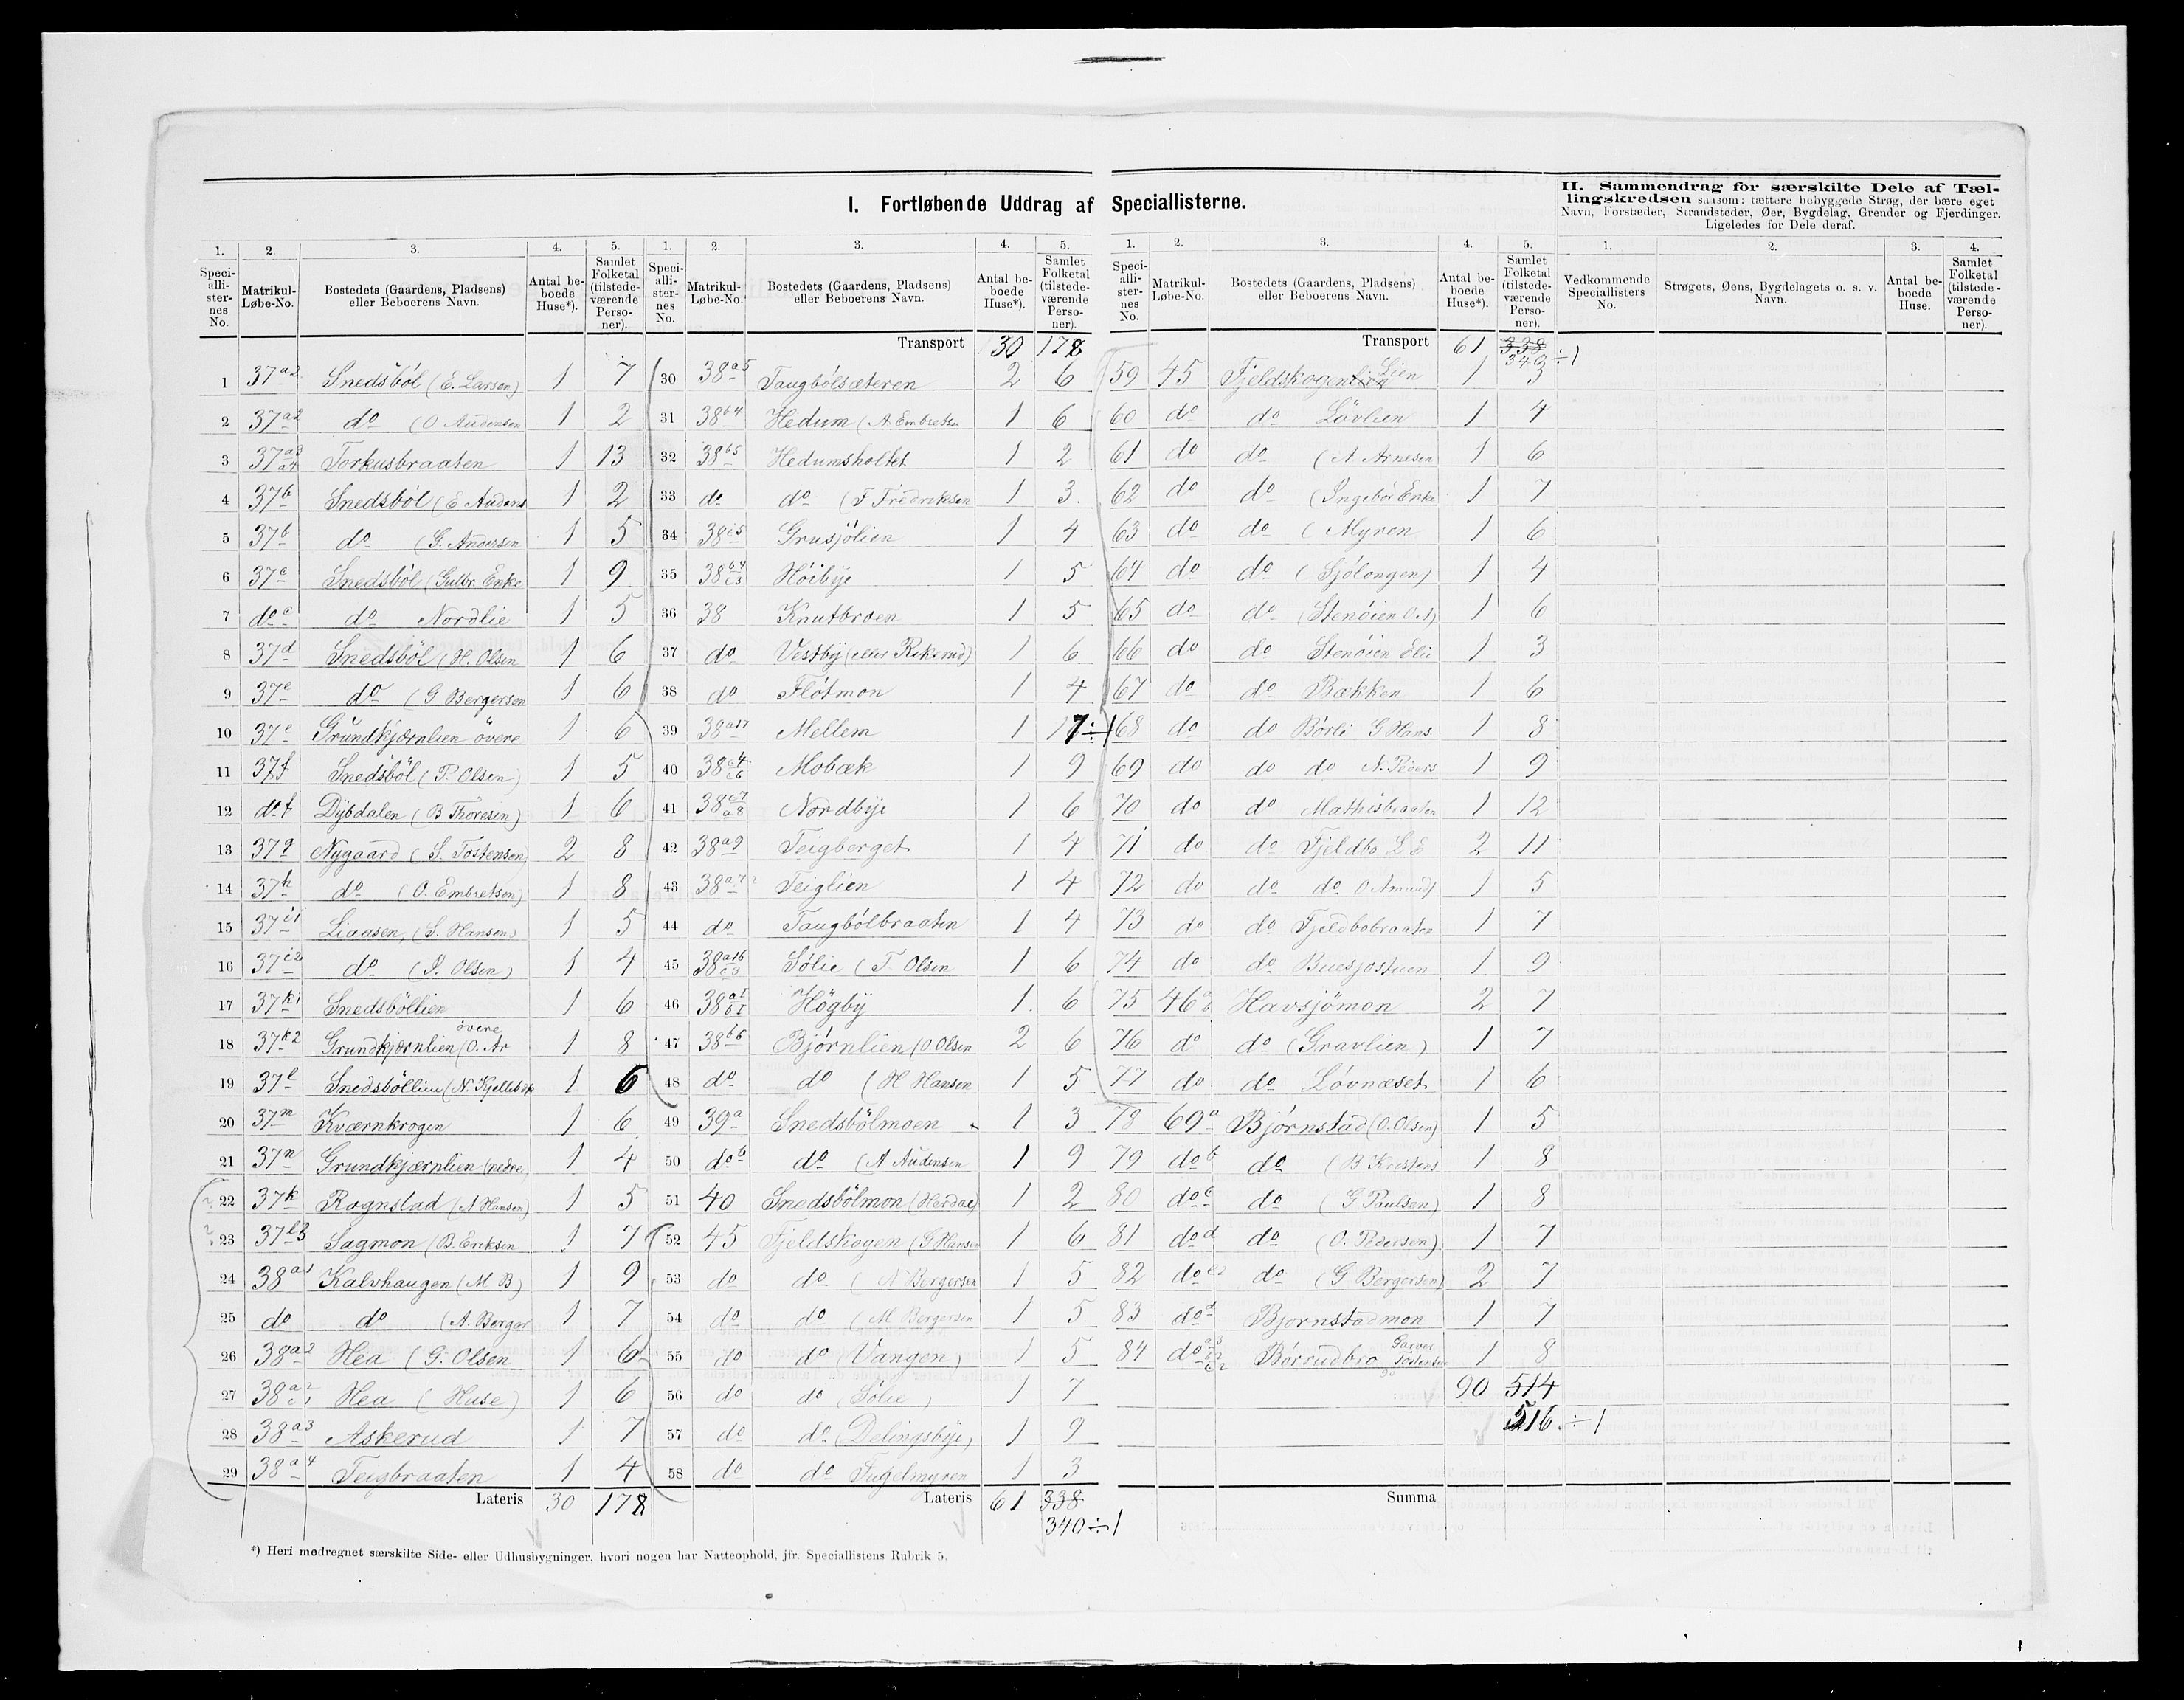 I. Fortløbende Uddrag af Speciallisterne.
II. Sammendrag for særskilte Dele af Tæl-
lingskredsen saasom: tættere bebyggede Strøg, der bære eget
Navn, Forstæder, Strandsteder, Øer, Bygdelag, Grender og Fjerdinger.
Ligeledes for Dele deraf.
1. 2. 3. 4. 5.
Speci-alli-ster-nes No. Matrikul-Løbe-No. Bostedets (Gaardens, Pladsens) eller Beboerens Navn. Antal be-boede Huse*). Samlet Folketal (tilstede-værende Perso-ner).
1 37a2 Snedsböl (E. Larsen) 1 7
2 37a2 do (O Audensen 1 2
3 37a3 a4 Torkusbraaten 1 13
4 37b Snedsböl (E Audens 1 2
5 37b do (G. Andersen 1 5
6 37c Snedsböl (Gulbr. Enke 1 9
7 do c do Nordlie 1 5
8 37d Snedsböl (H. Olsen 1 6
9 37e do (G Bergersen 1 6
10 37e Grundkjærnlien övere 1 6
11 37f Snedsböl (P. Olsen) 1 5
12 do f Dybdalen (B Thoresen) 1 6
13 37g Nygaard (S. Tostensen) 2 8
14 37h do (O. Embretsen) 1 8
15 37i1 Liaasen, (S. Hansen) 1 5
16 37i2 do (P. Olsen) 1 4
17 37k1 Snedsböllien 1 6
18 37k2 Grundkjærnlien övere (O. Ar 1 8
19 37l Snedsböllien (N. 1 6
20 37m Kværnkrogen 1 6
21 37n Grundkjærnlien (nedre) 1 4
22 37k Rognstad (A Hansen) 1 5
23 37l3 Sagmon (B. Eriksen 1 7
24 38a1 Kalvhaugen (M B) 1 9
25 do do (A. Berger 1 7
26 38a2 Hea (G. Olsen 1 6
27 38a2 c1 Hea (Huse) 1 6
28 38a3 Askerud 1 7
29 38a4 Teigbraaten 1 4
Lateris 30 178
1. 2. 3. 4. 5.
Speci-alli-ster-nes No. Matrikul-Løbe-No. Bostedets (Gaardens, Pladsens) eller Beboerens Navn. Antal be-boede Huse*). Samlet Folketal (tilstede-værende Perso-ner).
Transport 30 178
30 38a5 Taugbölsæteren 2 6
31 38b4 Hedum (A. Embretsen 1 6
32 38b5 Hedumsholtet 1 2
33 do do (F Fredriksen 1 3
34 38c5 Grusjölien 1 4
35 38b4 c3 Höibye 1 5
36 38 Knutbroen 1 5
37 do Vestby (eller Rekerud) 1 6
38 do Flötmon 1 4
39 38a17 Mellem 1 7 ÷ 1
40 38c4 c6 Mobæk 1 9
41 38c7 a8 Nordbye 1 6
42 38a9 Teigberget 1 4
43 38a7 Teiglien 1 4
44 do Taugbölbraaten 1 4
45 38a16 c3 Sölie (T. Olsen 1 6
46 38a1 b1 Högby 1 6
47 38b6 Björnlien (O. Olsen 2 6
48 do do (H Hansen 1 5
49 39a Snedsbölmoen 1 3
50 do b do (A Audensen 1 9
51 40 Snedsbölmon (Herdal) 1 2
52 45 Fjeldskogen (G Hansen 1 6
53 do do (N Bergersen 1 5
54 do do (M Bergersen 1 5
55 do do (Vangen) 1 5
56 do do (Sölie) 1 7
57 do do (Delingsbye) 1 9
58 do do Fugelmyren 1 3
Lateris 61 338
340 ÷ 1
1. 2. 3. 4. 5.
Speci-alli-ster-nes No. Matrikul-Løbe-No. Bostedets (Gaardens, Pladsens) eller Beboerens Navn. Antal be-boede Huse*). Samlet Folketal (tilstede-værende Perso-ner).
Transport 61 338
340 ÷ 1
59 45 Fjeldskogen Lien 1 3
60 do do Lövlien 1 4
61 do do (A Arnesen 1 6
62 do do (Ingebör Enke 1 7
63 do do (Myren 1 6
64 do do (Sjölongen) 1 4
65 do do (Stenöien O. A) 1 6
66 do do Stenöien Eli 1 3
67 do do Bækken 1 6
68 do do Börli G Hans. 1 8
69 do do do N. Peders 1 9
70 do do Mathisbraaten 1 12
71 do do Fjeldbo L E 2 11
72 do do do O Amund) 1 5
73 do do Fjeldbobraaten 1 7
74 do do Buesjostuen 1 9
75 46a b Havsjömon 2 7
76 do do (Gravlien) 1 7
77 do do Lövnæset 1 6
78 69a Björnstad (O. Olsen) 1 5
79 do b do (B Krestens 1 8
80 do c do (G Paulsen) 1 8
81 do d do (O. Pedersen) 1 7
82 do do (G Bergersen) 2 7
83 do d Bjornstadmon 1 7
84 do Börrudbro Tostensen 1 8
90 514
516 ÷ 1
Summa
1. 2. 3. 4.
Vedkommende Speciallisters No. Strøgets, Øens, Bygdelagets o. s. v. Navn. Antal be-boede Huse. Samlet Folketal (tilstede-værende Perso-ner).
*) Heri medregnet særskilte Side- eller Udhusbygninger, hvori nogen har Natteophold, jfr. Speciallistens Rubrik 5.